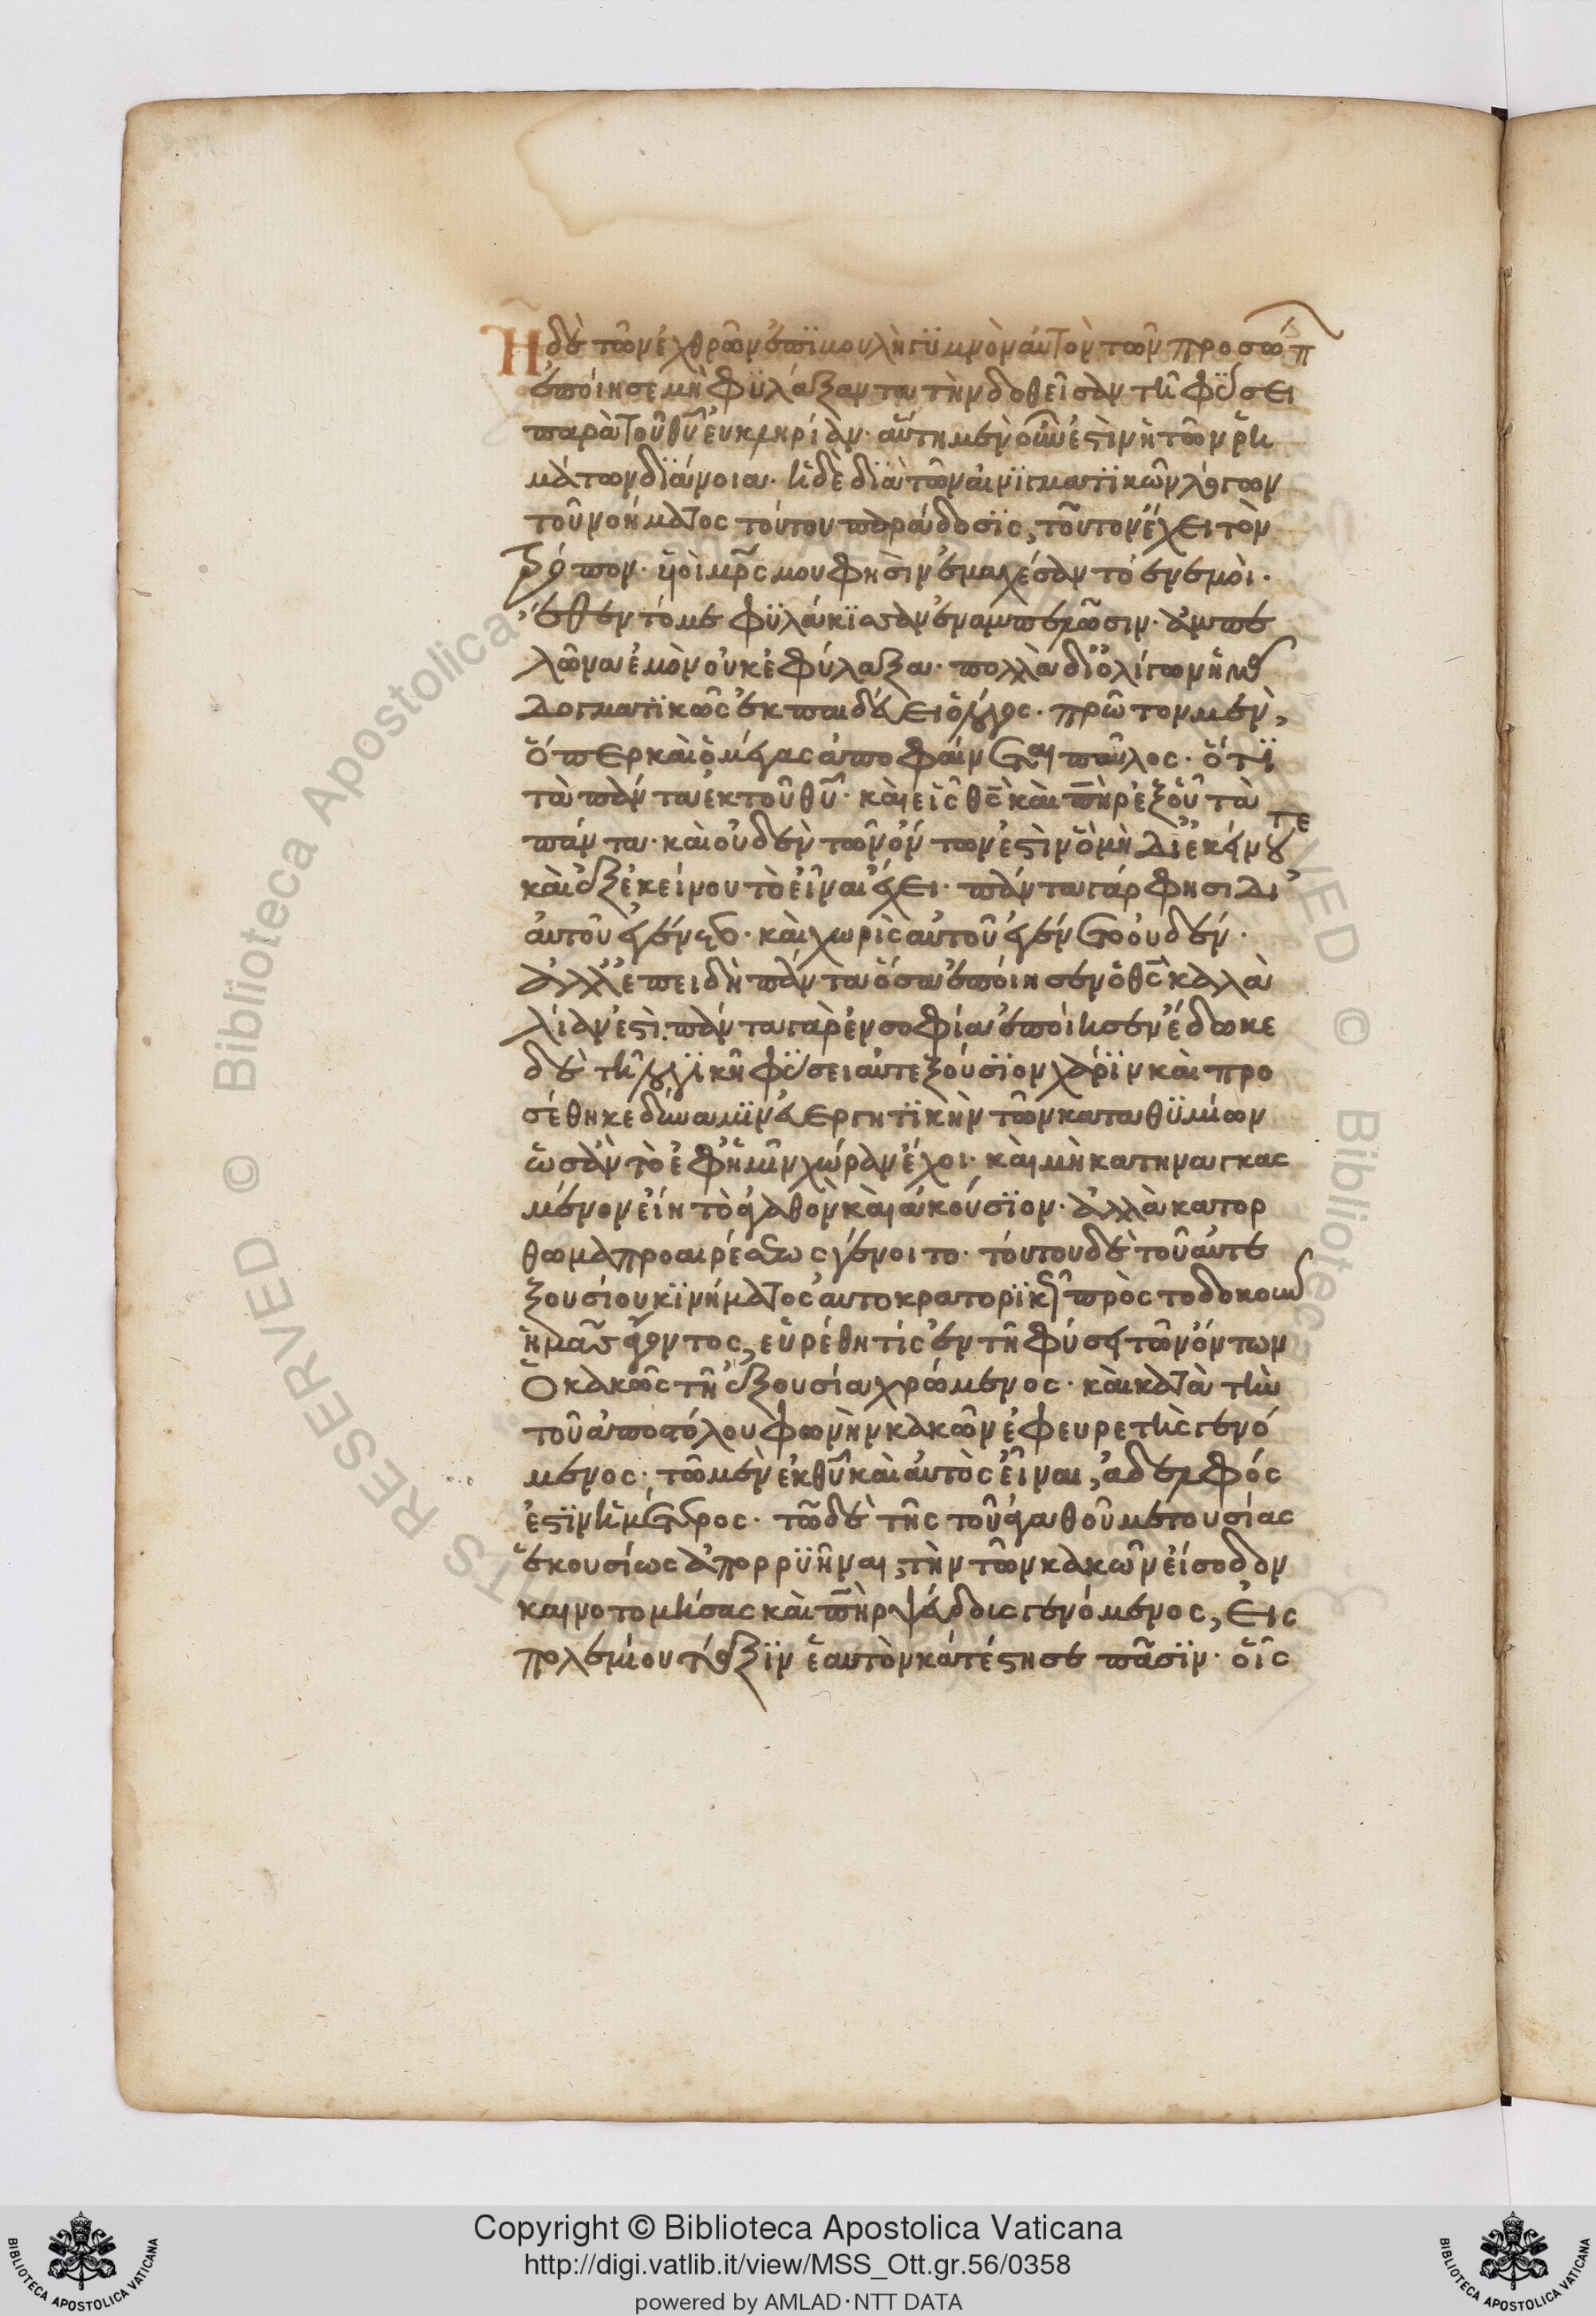 Ἡ δὲ τῶν ἐχθρῶν ἐπϊμουλὴ γϋμνὸν αὐτὸν τῶν προσώπ
ἐποίησε μὴ φϋλάξαντα τὴν δοθεῖσαν τῆ φϋσει
παρὰ τοῦ θῡ εὐκληρίαν· αὕτη μὲν οὖν ἐστὶν ἡ τῶν ῥη
μάτων δϊάνοια· ἡ δὲ δϊὰ τῶν αἰνϊγματϊκῶν λόγων
τοῦ νοήματος τούτου παράδοσϊς, τοῦτον ἔχει τὸν
τρόπον· ϋἱοὶ μρ̅ς μου φησὶν ἐμαχέσαντο ἐν ἐμοὶ·
ἔθεντό με φϋλάκϊσσαν ἐν ἀμπελῶσιν· ἀμπε
λῶνα ἐμὸν οὐκ ἐφύλαξα· πολλὰ δι᾽ ὀλίγων ἡμᾶς
δογματϊκῶς ἐκπαιδεύει ὁ λόγος· πρῶτον μὲν,
ὅπερ καὶ ὁ μέγας ἀποφαίνεται παῦλος· ὅτϊ
τὰ πάντα ἐκ τοῦ θῡ· καὶ εἷς θς̅ καὶ πη̅ρ ἐξ οὗ τὰ τε
πάντα· καὶ οὐδὲν τῶν ὄντων ἐστὶν ὃ μὴ δι᾽ ἐκείνου
καὶ ἐξ ἐκείνου τὸ εἶναι ἔχει· πάντα γάρ φησι δι᾽
αὐτοῦ ἐγένετο· καὶ χωρὶς αὐτοῦ ἐγένετο οὐδέν·
ἀλλ᾽ ἐπειδὴ πάντα ὅσα ἐποίησεν ὁ θς̅ καλὰ
λίαν ἐστὶ. πάντα γὰρ ἐν σοφία ἐποίησεν ἔδωκε
δὲ τῆ λογϊκῆ φϋσει αὐτεξούσϊον χάρϊν καὶ προ
σέθηκε δύναμϊν εὑρετϊκὴν τῶν καταθϋμίων
ὡς ἂν τὸ ἐφ᾽ ἡμῖν χώραν ἔχοι· καὶ μὴ κατηναγκας
μένον εἴη τὸ ἀγαθὸν καὶ ἀκούσϊον· ἀλλὰ κατορ
θωμα προαιρέσεως γένοιτο· τούτου δὲ τοῦ αὐτε
ξουσίου κϊνήματος αὐτοκρατορϊκῶς πρὸς τὸ δοκοῦν
ἡμᾶς ἄγοντος, εὑρέθη τίς ἐν τῆ φύσει τῶν ὄντων
ὁ κακῶς τῆ ἐξουσία χρώμενος· καὶ κατὰ τὴν
τοῦ ἀποστόλου φωνὴν κακῶν ἐφευρετὴς γενό
μενος· τῶ μὲν ἐκ θῡ καὶ αὐτὸς εἶναι, ἀδελφός
ἐστϊν ἡμέτερος· τῶ δὲ τῆς τοῦ ἀγαθοῦ μετουσίας
ἑκουσίως ἀπορρϋῆναι, τὴν τῶν κακῶν εἴσοδον
καινοτομήσας καὶ πη̅ρ ψεύδοις γενόμενος, εἰς
πολεμίου τάξϊν ἑαυτὸν κατέστησε πᾶσϊν· οἷς
Copyright © Biblioteca Apostolica Vaticana
http://digi.vatlib.it/view/MSS_Ott.gr.56/0358
powered by AMLAD·NTT DATA